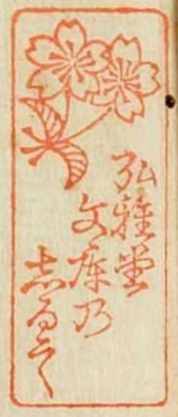 弘雅堂
文庫乃
志るし